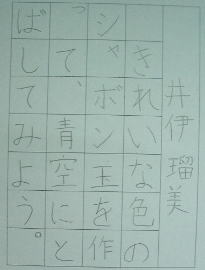 井伊瑠美
きれいな色の
シャボン玉を作
って、青空にと
ばしてみよう。